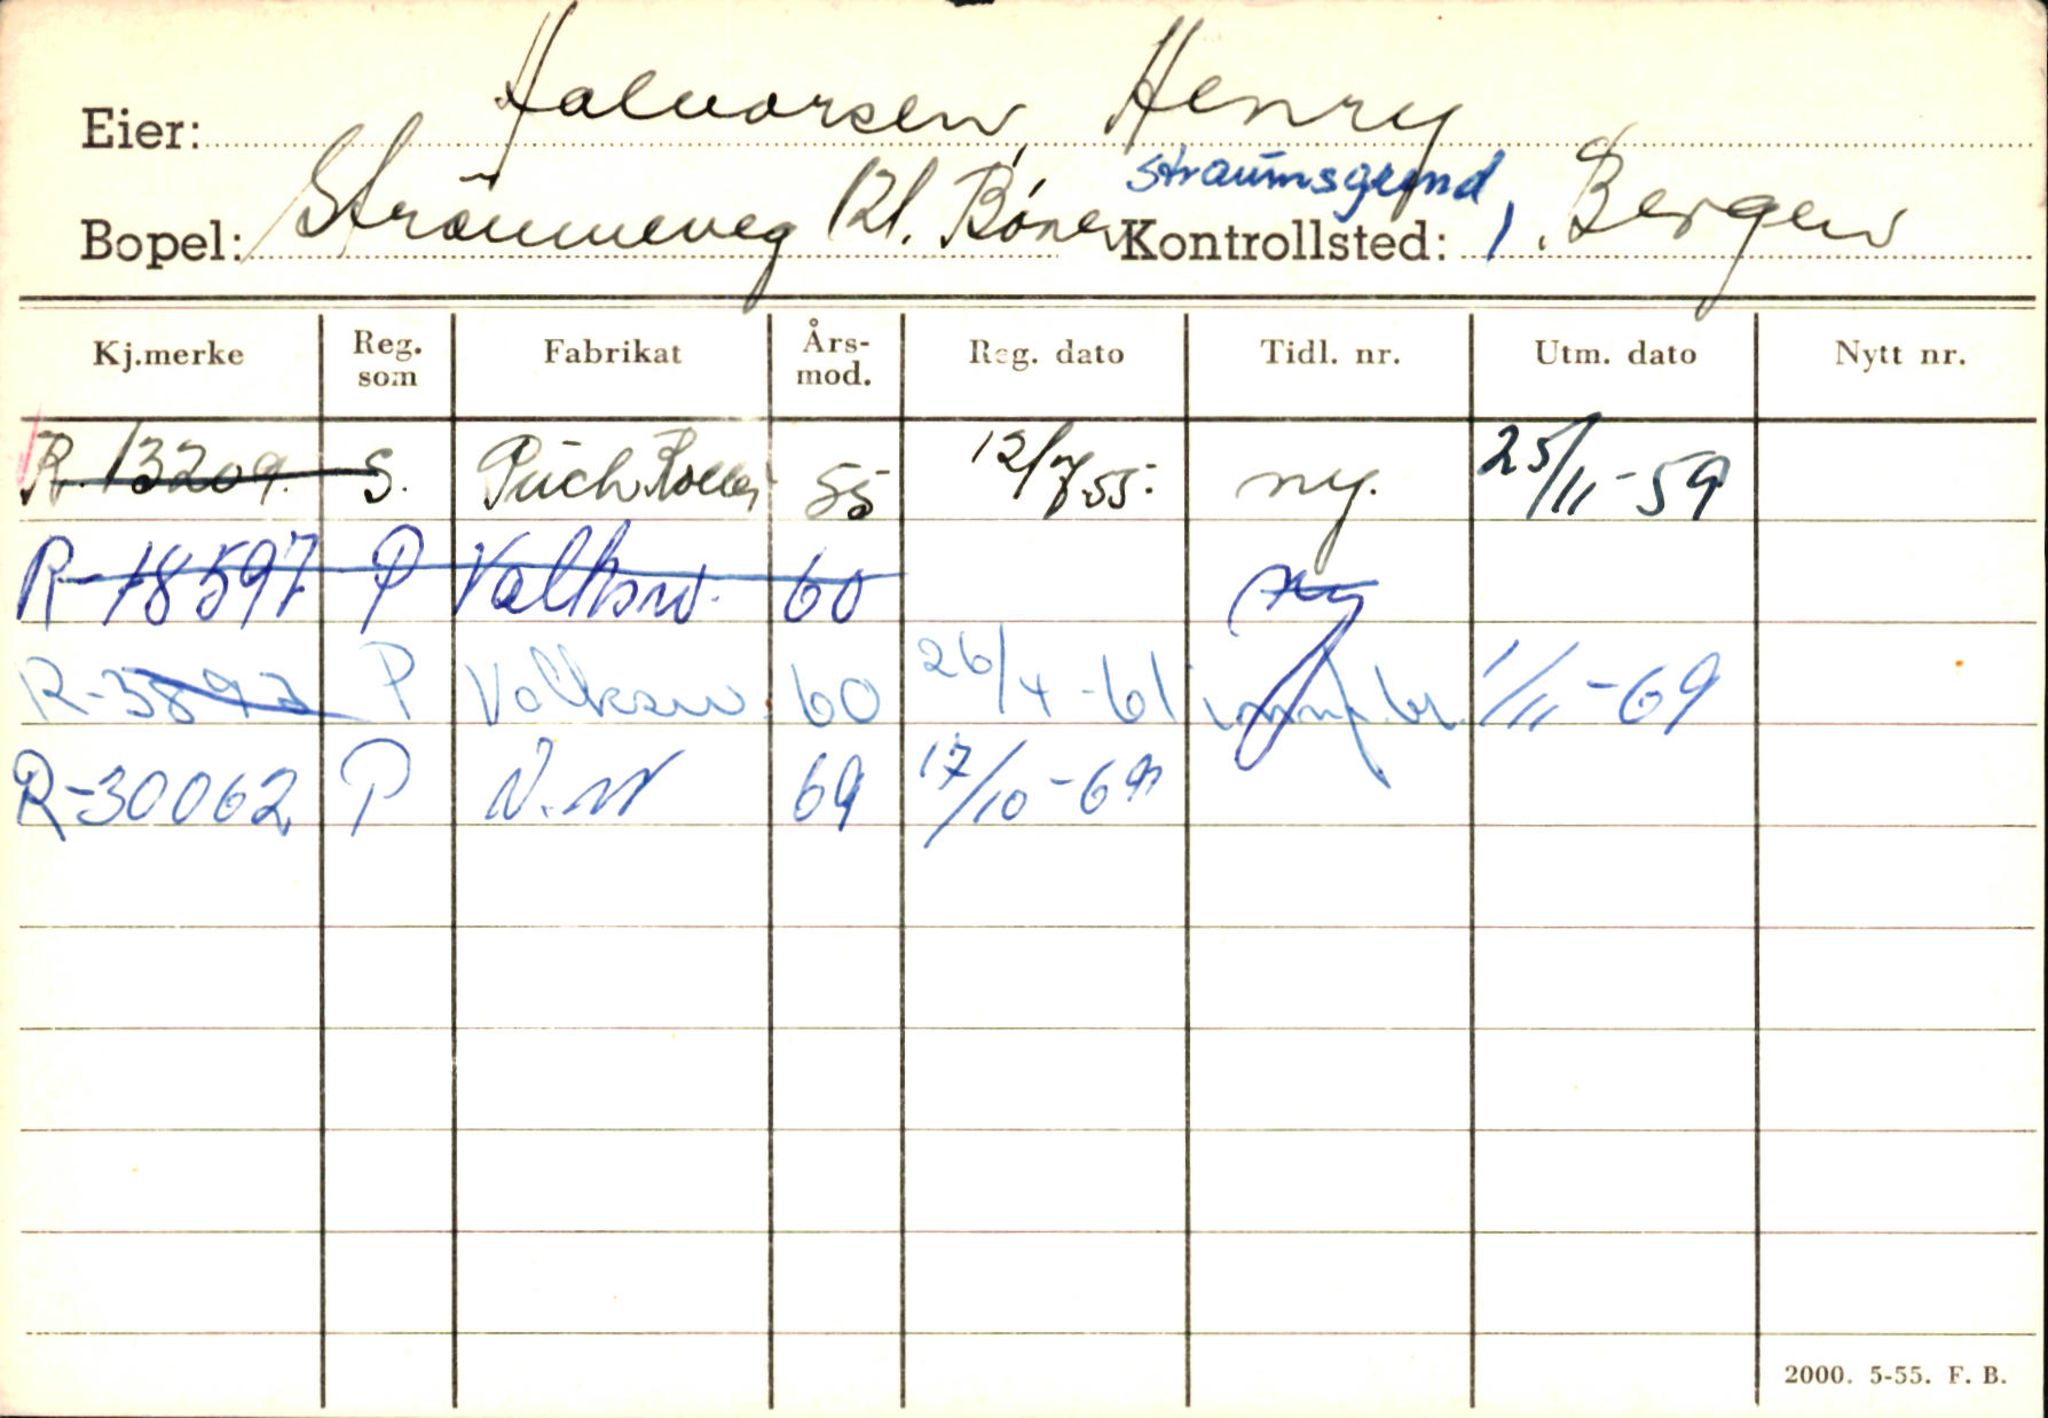 Eier: Halvorsen, Henry
Straumsgrend
Bopel: Strömmeveg 121. Bönes Kontrollsted: 1. Bergen
Kj.merke Reg. som Fabrikat Års-mod. Reg. dato Tidl. nr. Utm. dato Nytt nr.
R. 13209. S. Puch Roller 55 12/7 55. ny. 25/11-59
R-18597 P Volksw. 60 Ny
R-3897 P Volksw. 60 26/4-61 1/11-69
R-30062 P V.W 69 17/10-69
2000. 5-55. F. B.